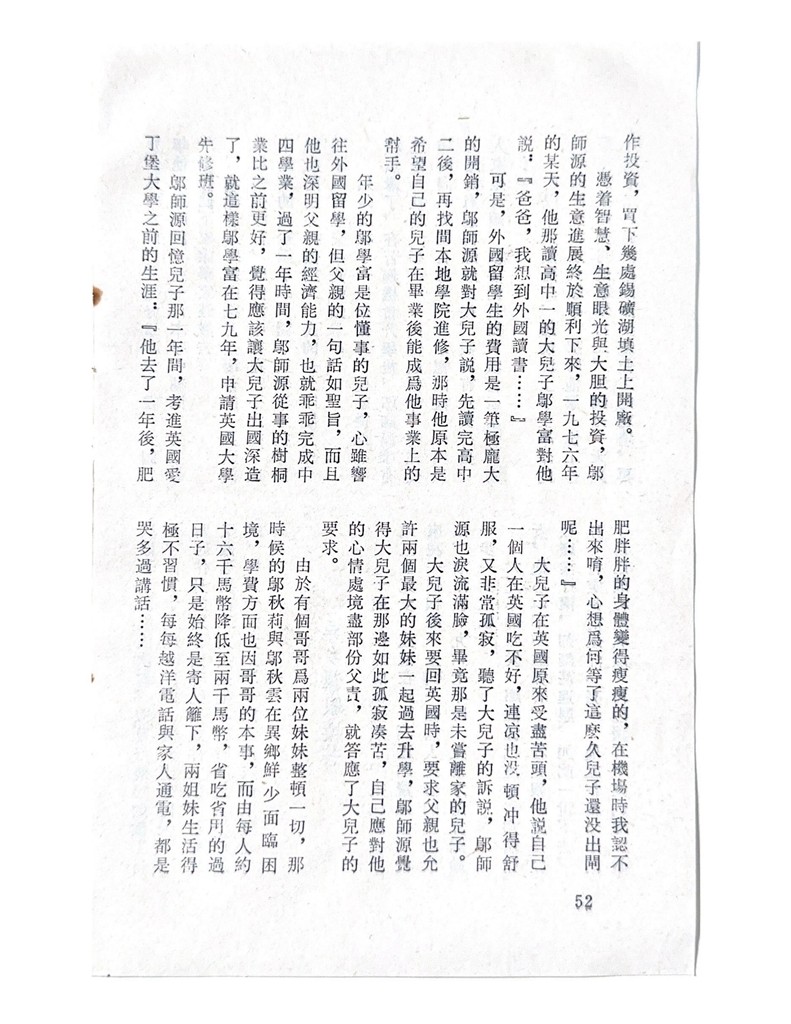 作投資，買下幾處錫礦湖填土上開廠。
憑着智慧、生意眼光與大胆的投資，鄔
師源的生意進展終於順利下來，一九七六年
的某天，他那讀高中一的大兒子鄔學富對他
説：『爸爸，我想到外國讀書……』
可是，外國留學生的費用是一筆極龐大
的開銷，鄔師源就對大兒子説，先讀完高中
二後，再找間本地學院進修，那時他原本是
希望自己的兒子在畢業後能成爲他事業上的
幫手。
年少的鄔學富是位懂事的兒子，心雖響
往外國留學，但父親的一句話如聖旨，而且
他也深明父親的經濟能力，也就乖乖完成中
四學業，過了一年時間，鄔師源從事的樹桐
業比之前更好，覺得應該讓大兒子出國深造
了，就這樣鄔學富在七九年，申請英國大學
先修班。
鄔師源回憶兒子那一年間，考進英國愛
丁堡大學之前的生涯：『他去了一年後，肥
肥胖胖的身體變得瘦瘦的，在機塲時我認不
出來唷，心想爲何等了這麽久兒子還没出閘
呢……』
大兒子在英國原來受盡苦頭，他説自己
一個人在英國吃不好，連凉也没頓冲得舒
服，又非常孤寂，聽了大兒子的訴説，鄔師
源也淚流滿臉，畢竟那是未嘗離家的兒子。
大兒子後來要回英國時，要求父親也允
許兩個最大的妹妹一起過去升學，鄔師源覺
得大兒子在那邊如此孤寂凑苦，自己應對他
的心情處境盡部份父責，就答應了大兒子的
要求。
由於有個哥哥爲兩位妹妹整頓一切，那
時候的鄔秋莉與鄔秋雲在異鄉鮮少面臨困
境，學費方面也因哥哥的本事，而由每人約
十六千馬幣降低至兩千馬幣，省吃省用的過
日子，只是始終是寄人籬下，兩姐妹生活得
極不習慣，每每越洋電話與家人通電，都是
哭多過講話……
52